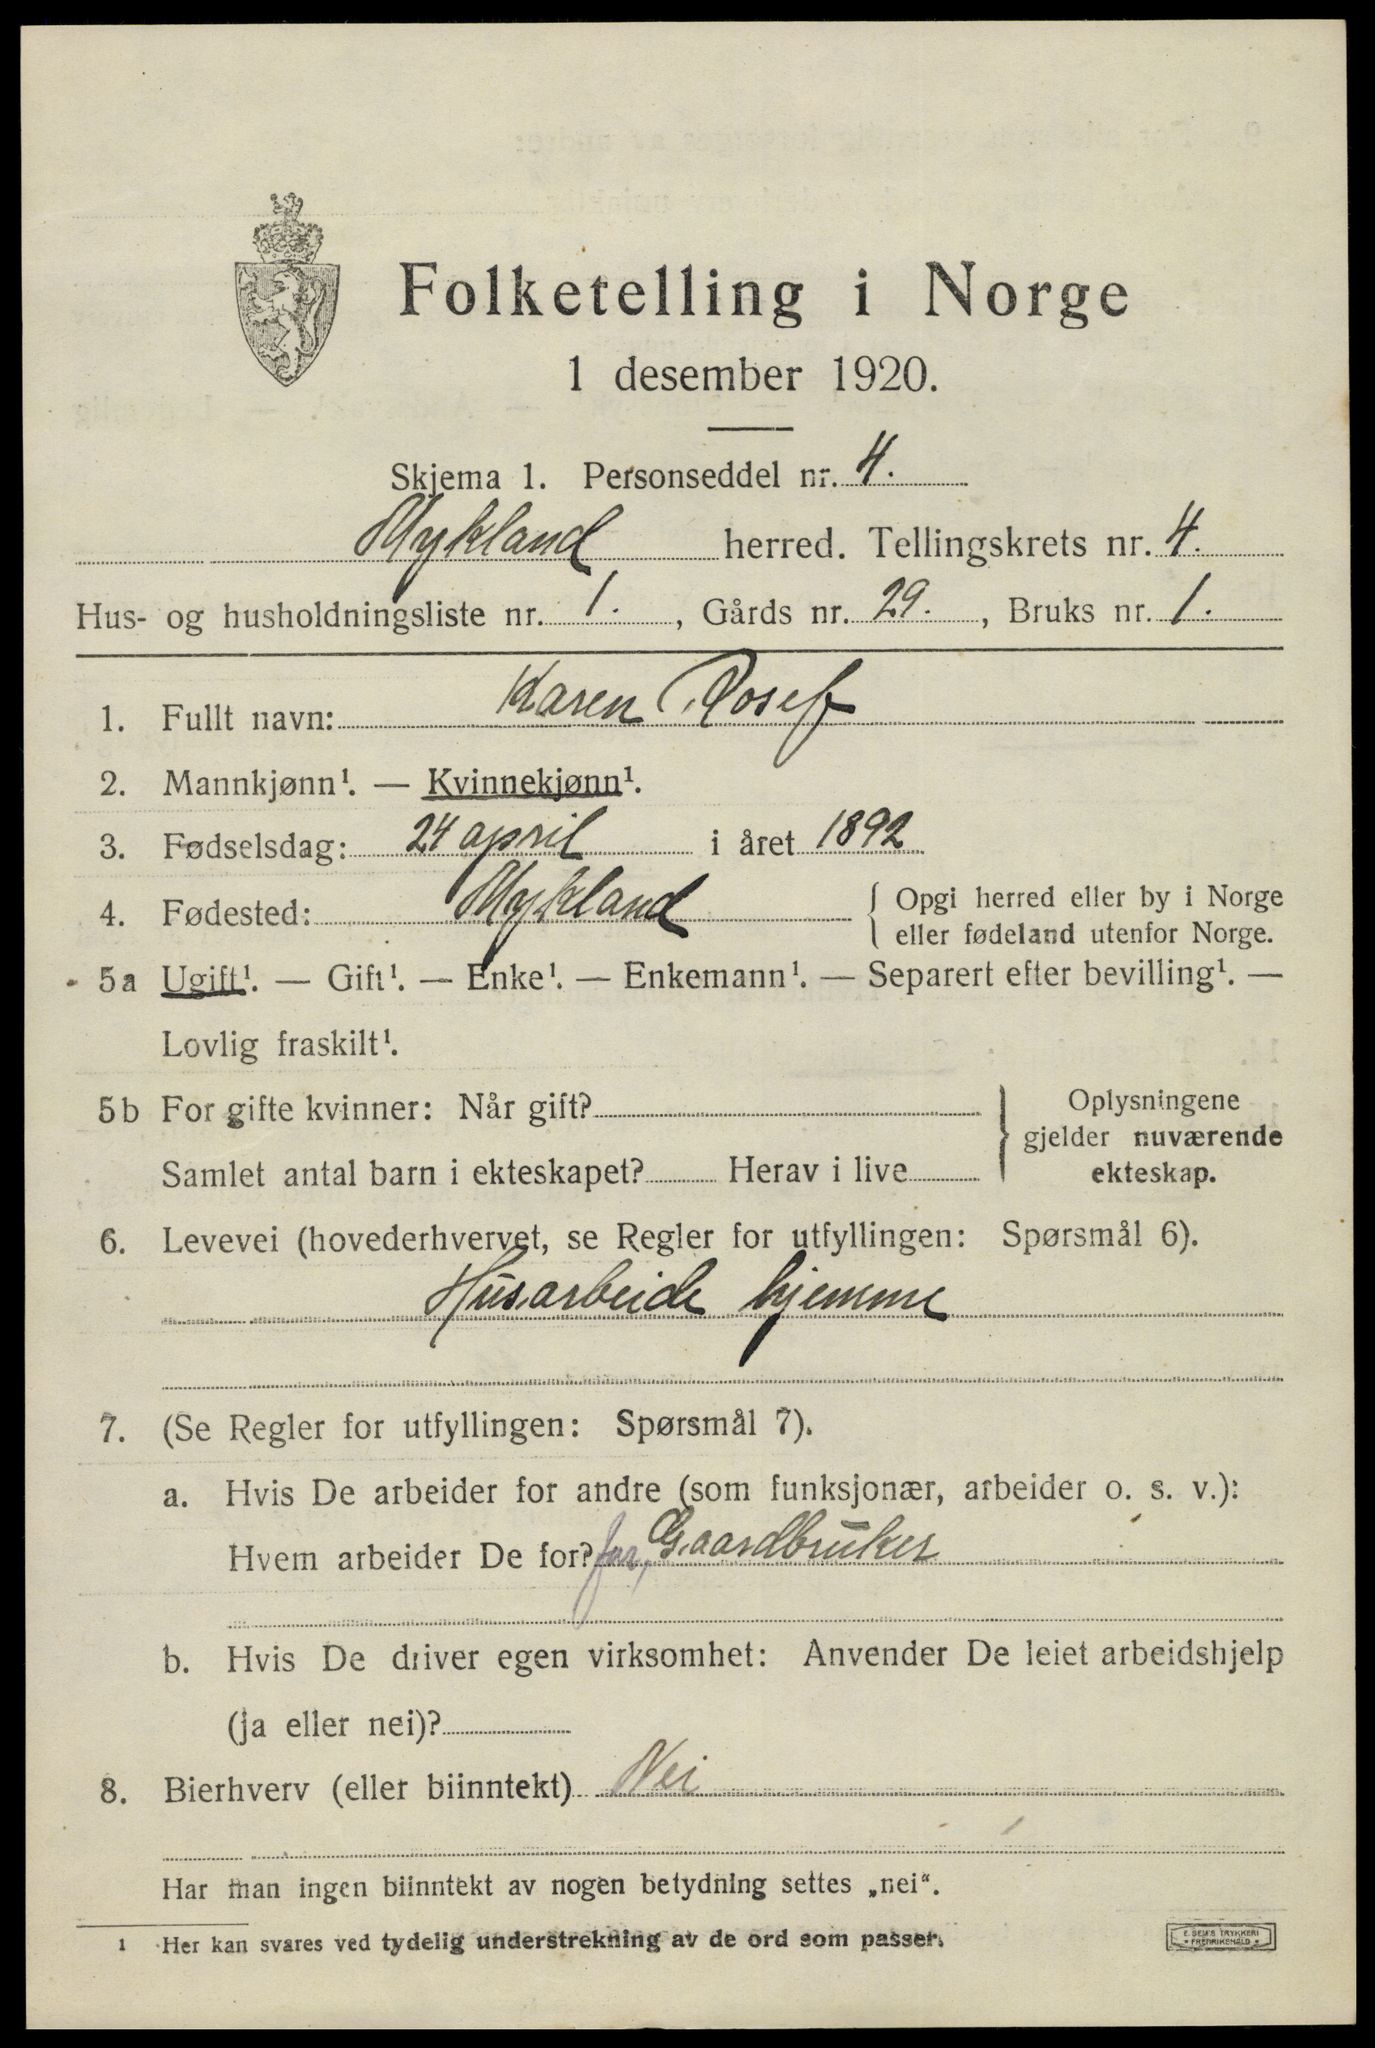 Folketelling i Norge
1 desember 1920.
Skjema 1. Personseddel nr. 4.
Mykland herred. Tellingskrets nr. 4.
Hus- og husholdningsliste nr. 1., Gårds nr. 29., Bruks nr. 1.
1. Fullt navn: Karen Rosef
2. Mannkjønn¹. — Kvinnekjønn¹.
3. Fødselsdag: 24 april i året 1892
4. Fødested: Mykland { Opgi herred eller by i Norge
eller fødeland utenfor Norge.
5a Ugift¹. — Gift¹. — Enke¹. — Enkemann¹. — Separert efter bevilling¹. —
Lovlig fraskilt¹.
5b For gifte kvinner: Når gift?
Samlet antal barn i ekteskapet? Herav i live
} Oplysningene
gjelder nuværende
ekteskap.
6. Levevei (hovederhvervet, se Regler for utfyllingen: Spørsmål 6).
Husarbeide hjemme
7. (Se Regler for utfyllingen: Spørsmål 7).
a. Hvis De arbeider for andre (som funksjonær, arbeider o. s. v.):
Hvem arbeider De for? far, Gaardbruker
b. Hvis De driver egen virksomhet: Anvender De leiet arbeidshjelp
(ja eller nei)?
8. Bierhverv (eller biinntekt) Nei
Har man ingen biinntekt av nogen betydning settes „nei“.
1 Her kan svares ved tydelig understrekning av de ord som passer.
E. SEM'S TRYKKERI
FREDRIKSHALD